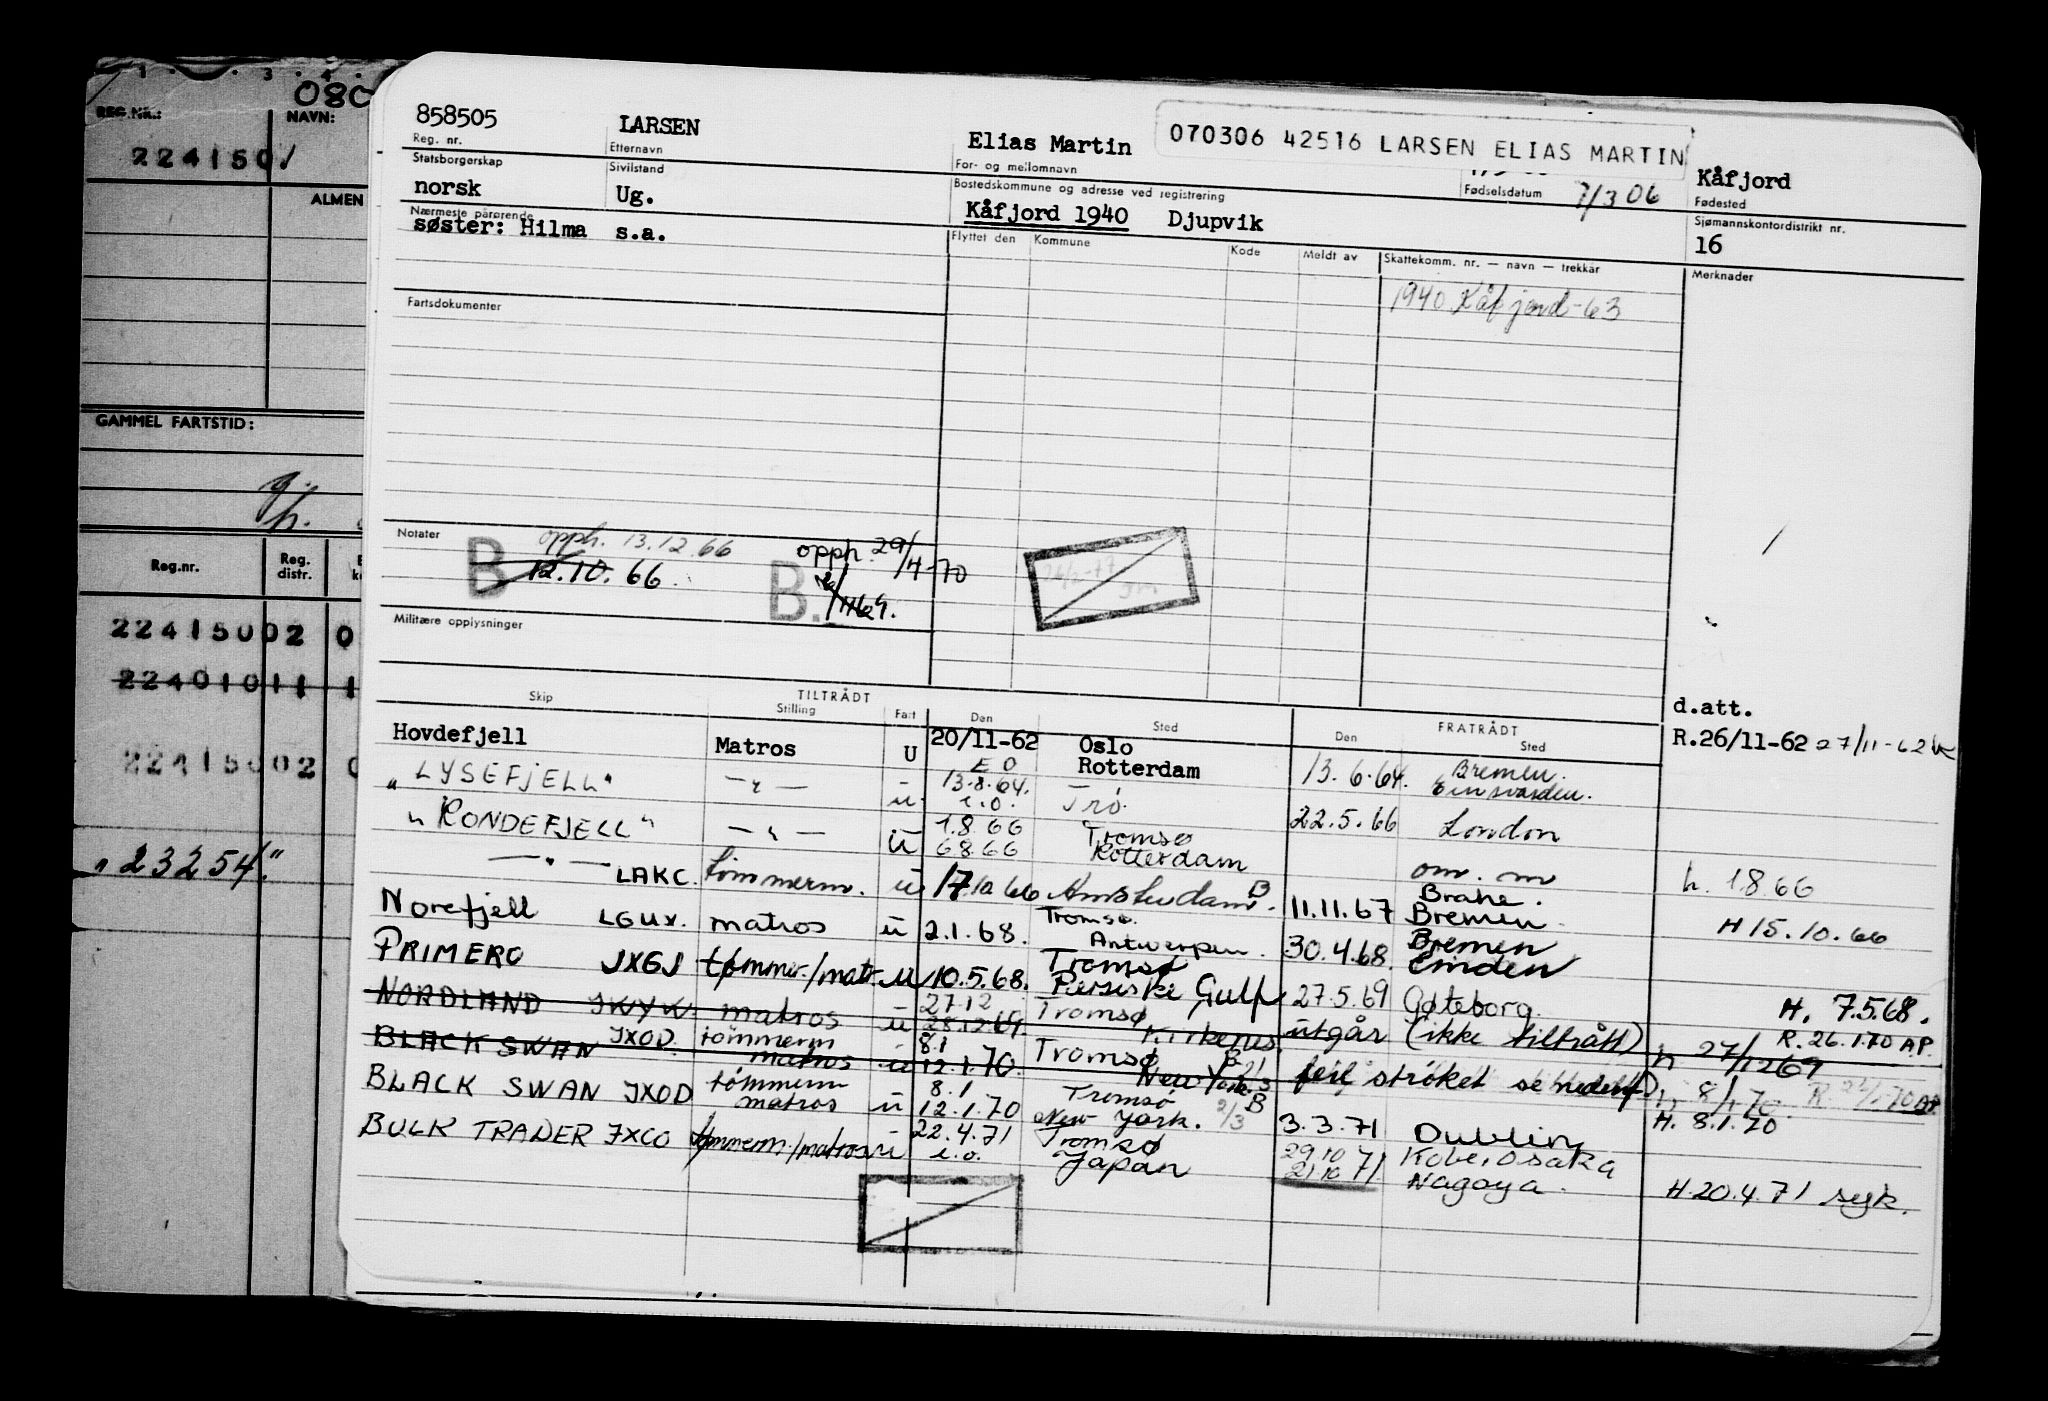 1 . . 3 . 4 .
080
REG.NR.:
NAVN:
2241501
ALMEN
GAMMEL FARTSTID:
g.
h.
Reg.nr.
Reg. distr.
22415002 0
22401011 1
22415002 0
"23254."
858505 LARSEN Elias Martin 070306 42516 LARSEN ELIAS MARTIN Kåfjord
Reg. nr. Etternavn For- og mellomnavn Fødselsdatum 7/3 06 Fødested
Statsborgerskap Sivilstand Bostedskommune og adresse ved registrering Sjømannskontordistrikt nr.
norsk Ug. Kåfjord 1940 Djupvik 16
Nærmeste pårørende Flyttet den Kommune Kode Meldt av Skattekomm. nr. — navn — trekkår Merknader
søster: Hilma s.a.
1940 Kåfjord-63
Fartsdokumenter
Notater
B opph. 13.12.66
12.10.66.
B. opph. 29/4-70
Militære opplysninger
TILTRÅDT FRATRÅDT
Skip Stilling Fart Den Sted Den Sted
d.att.
Hovdefjell Matros U 20/11-62 Oslo R.26/11-62 27/11-62
E O Rotterdam 13.6.64. Bremen.
"LYSEFJELL" — " — u. 13.8.64. Trø.
i.o. 22.5.66 London
"RONDEFJELL" — " — u 1.8.66 Tromsø
6866 Rotterdam om. m h. 1866
— " — LAKC. tømmerm. u 17 10 66 Amsterdam B. 11.11.67 Brake. H 15.10.66
Bremen.
Norefjell LGUX. matros u 2.1.68. Tromsø.
Antwerpen. 30.4.68. Bremen
Emden
PRIMERO JXGJ tømmer./matr. u 10.5.68. Tromsø
Persiske Gulf 27.5.69 Gøteborg. H. 7.5.68.
NORDLAND JWYW matros u 27.12 Tromsø
28.12.69. Kirkenes. utgår (ikke tiltrått) h 27/1269 R. 26.1.70 A.P.
BLACK SWAN JXOD. tømmerm
matros u 8.1
12.1.70. Tromsø
New York. feil strøket se nedenf.) h 8/1 70.
BLACK SWAN JXOD tømmerm
matros u 8.1
12.1.70 Tromsø B
New York. 2/3 3.3.71 Dublin H. 8.1.70
BULK TRADER JXCO tømmerm./matros u 22.4.71 Tromsø
i.o. Japan 29.10 71. Kobe, Osaka
21.10 Nagoya. H. 20.4.71 syk.